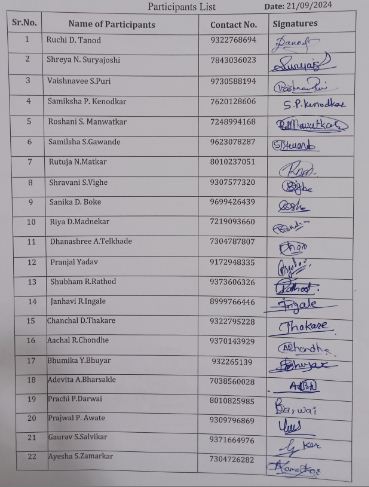 Participants List Date: 21/09/2024
Sr.No. Name of Participants Contact No. Signatures
1 Ruchi D. Tanod 9322768694
2 Shreya N. Suryajoshi 7843036023
3 Vaishnavee S.Puri 9730588194
4 Samiksha P. Kenodkar 7620128606 S.P.Kenodkar
5 Roshani S. Manwatkar 7248994168
6 Samiksha S.Gawande 9623078287
7 Rutuja N.Matkar 8010237051
8 Shravani S.Vighe 9307577320
9 Sanika D. Boke 9699426439
10 Riya D.Madnekar 7219093660
11 Dhanashree A.Telkhade 7304787807
12 Pranjal Yadav 9172948335
13 Shubham R.Rathod 9373606326
14 Janhavi R.Ingale 8999766446 Ingale
15 Chanchal D.Thakare 9322795228 Thakare
16 Aachal R.Chondhe 9370143929
17 Bhumika Y.Bhuyar 932265139
18 Adevita A.Bharsakle 7038560028
19 Prachi P.Darwai 8010825985
20 Prajwal P. Awate 9309796869
21 Gaurav S.Salvikar 9371664976
22 Ayesha S.Zamarkar 7304726282